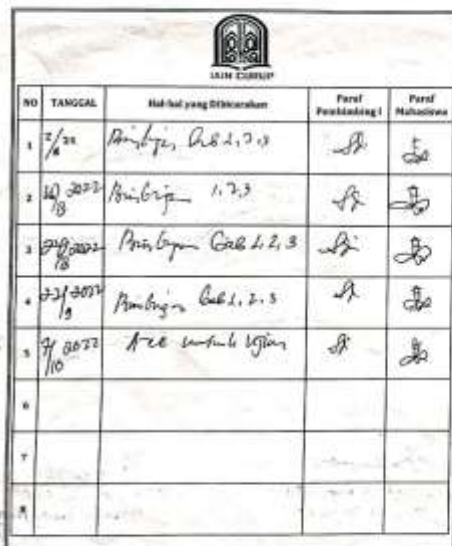 IAIN CURUP
NO TANGGAL Hal-hal yang Dibicarakan Paraf Pembimbing I Paraf Mahasiswa
1 2/8 22 Bimbingan Bab 1, 2, 3
2 2022 Bimbingan 1, 2, 3
3 2022 Bimbingan Bab 1, 2, 3
4 22/9 2022 Bimbingan Bab 1, 2, 3
5 7/10 2022 Acc untuk Ujian
6
7
8